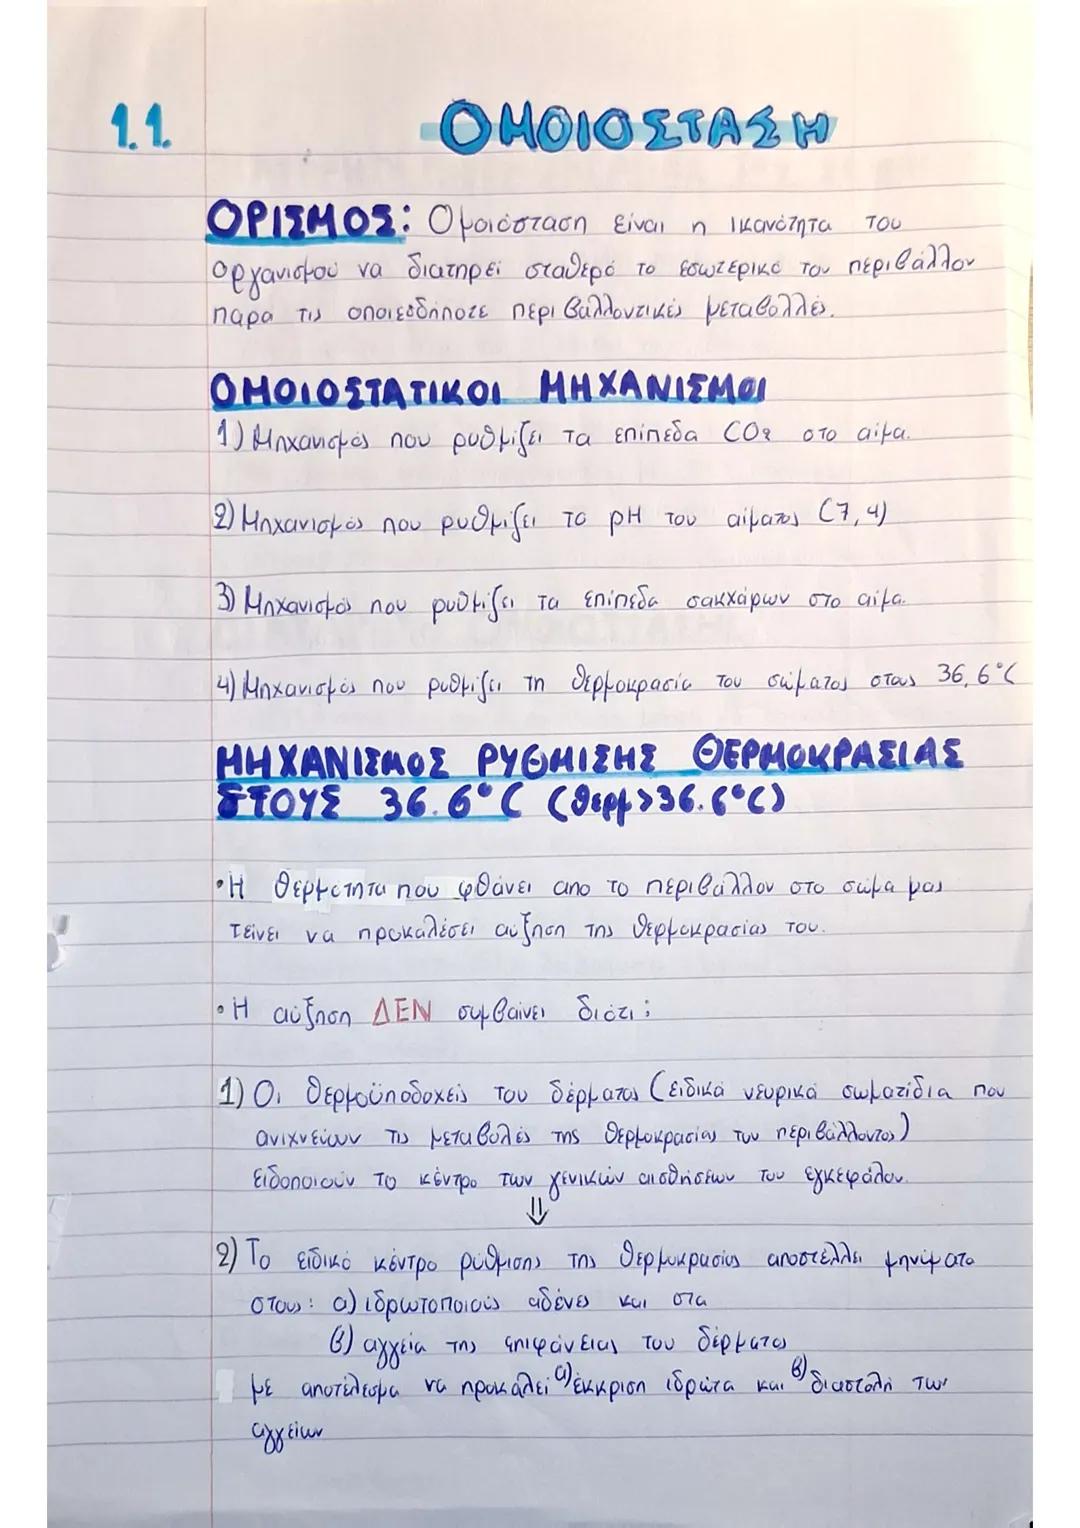 1.1. ΟΜΟΙΟΣΤΑΣΗ
ΟΡΙΣΜΟΣ: Ομοιόσταση είναι η ικανότητα του
οργανισμού να διατηρεί σταθερό το εσωτερικό του περιβάλλον
παρα τις οποιεσδήποτε περιβαλλοντικές μεταβολλές.
ΟΜΟΙΟΣΤΑΤΙΚΟΙ ΜΗΧΑΝΙΣΜΟΙ
1) Μηχανισμός που ρυθμίζει τα επίπεδα CO2 στο αίμα.
2) Μηχανισμός που ρυθμίζει το pH του αίματος (7,4)
3) Μηχανισμός που ρυθμίζει τα επίπεδα σακχάρων στο αίμα.
4) Μηχανισμός που ρυθμίζει τη θερμοκρασία του σώματος στους 36,6°C
ΜΗΧΑΝΙΣΜΟΣ ΡΥΘΜΙΣΗΣ ΘΕΡΜΟΚΡΑΣΙΑΣ
ΣΤΟΥΣ 36.6°C (θερμ>36.6°C)
•Η θερμότητα που φθάνει απο το περιβάλλον στο σώμα μας
τείνει να προκαλέσει αύξηση της θερμοκρασίας του.
•Η αύξηση ΔΕΝ συμβαίνει διότι:
1) Οι θερμοϋποδοχείς του δέρματος (ειδικά νευρικά σωματίδια που
ανιχνεύουν τις μεταβολές της θερμοκρασίας του περιβάλλοντος)
ειδοποιούν το κέντρο των γενικών αισθήσεων του εγκεφάλου.
⇓
2) Το ειδικό κέντρο ρύθμισης της θερμοκρασίας αποστέλλει μηνύματα
στους: α) ιδρωτοποιούς αδένες και στα
β) αγγεία της επιφάνειας του δέρματος
με αποτέλεσμα να προκαλεί α) έκκριση ιδρώτα και β) διαστολή των
αγγείων